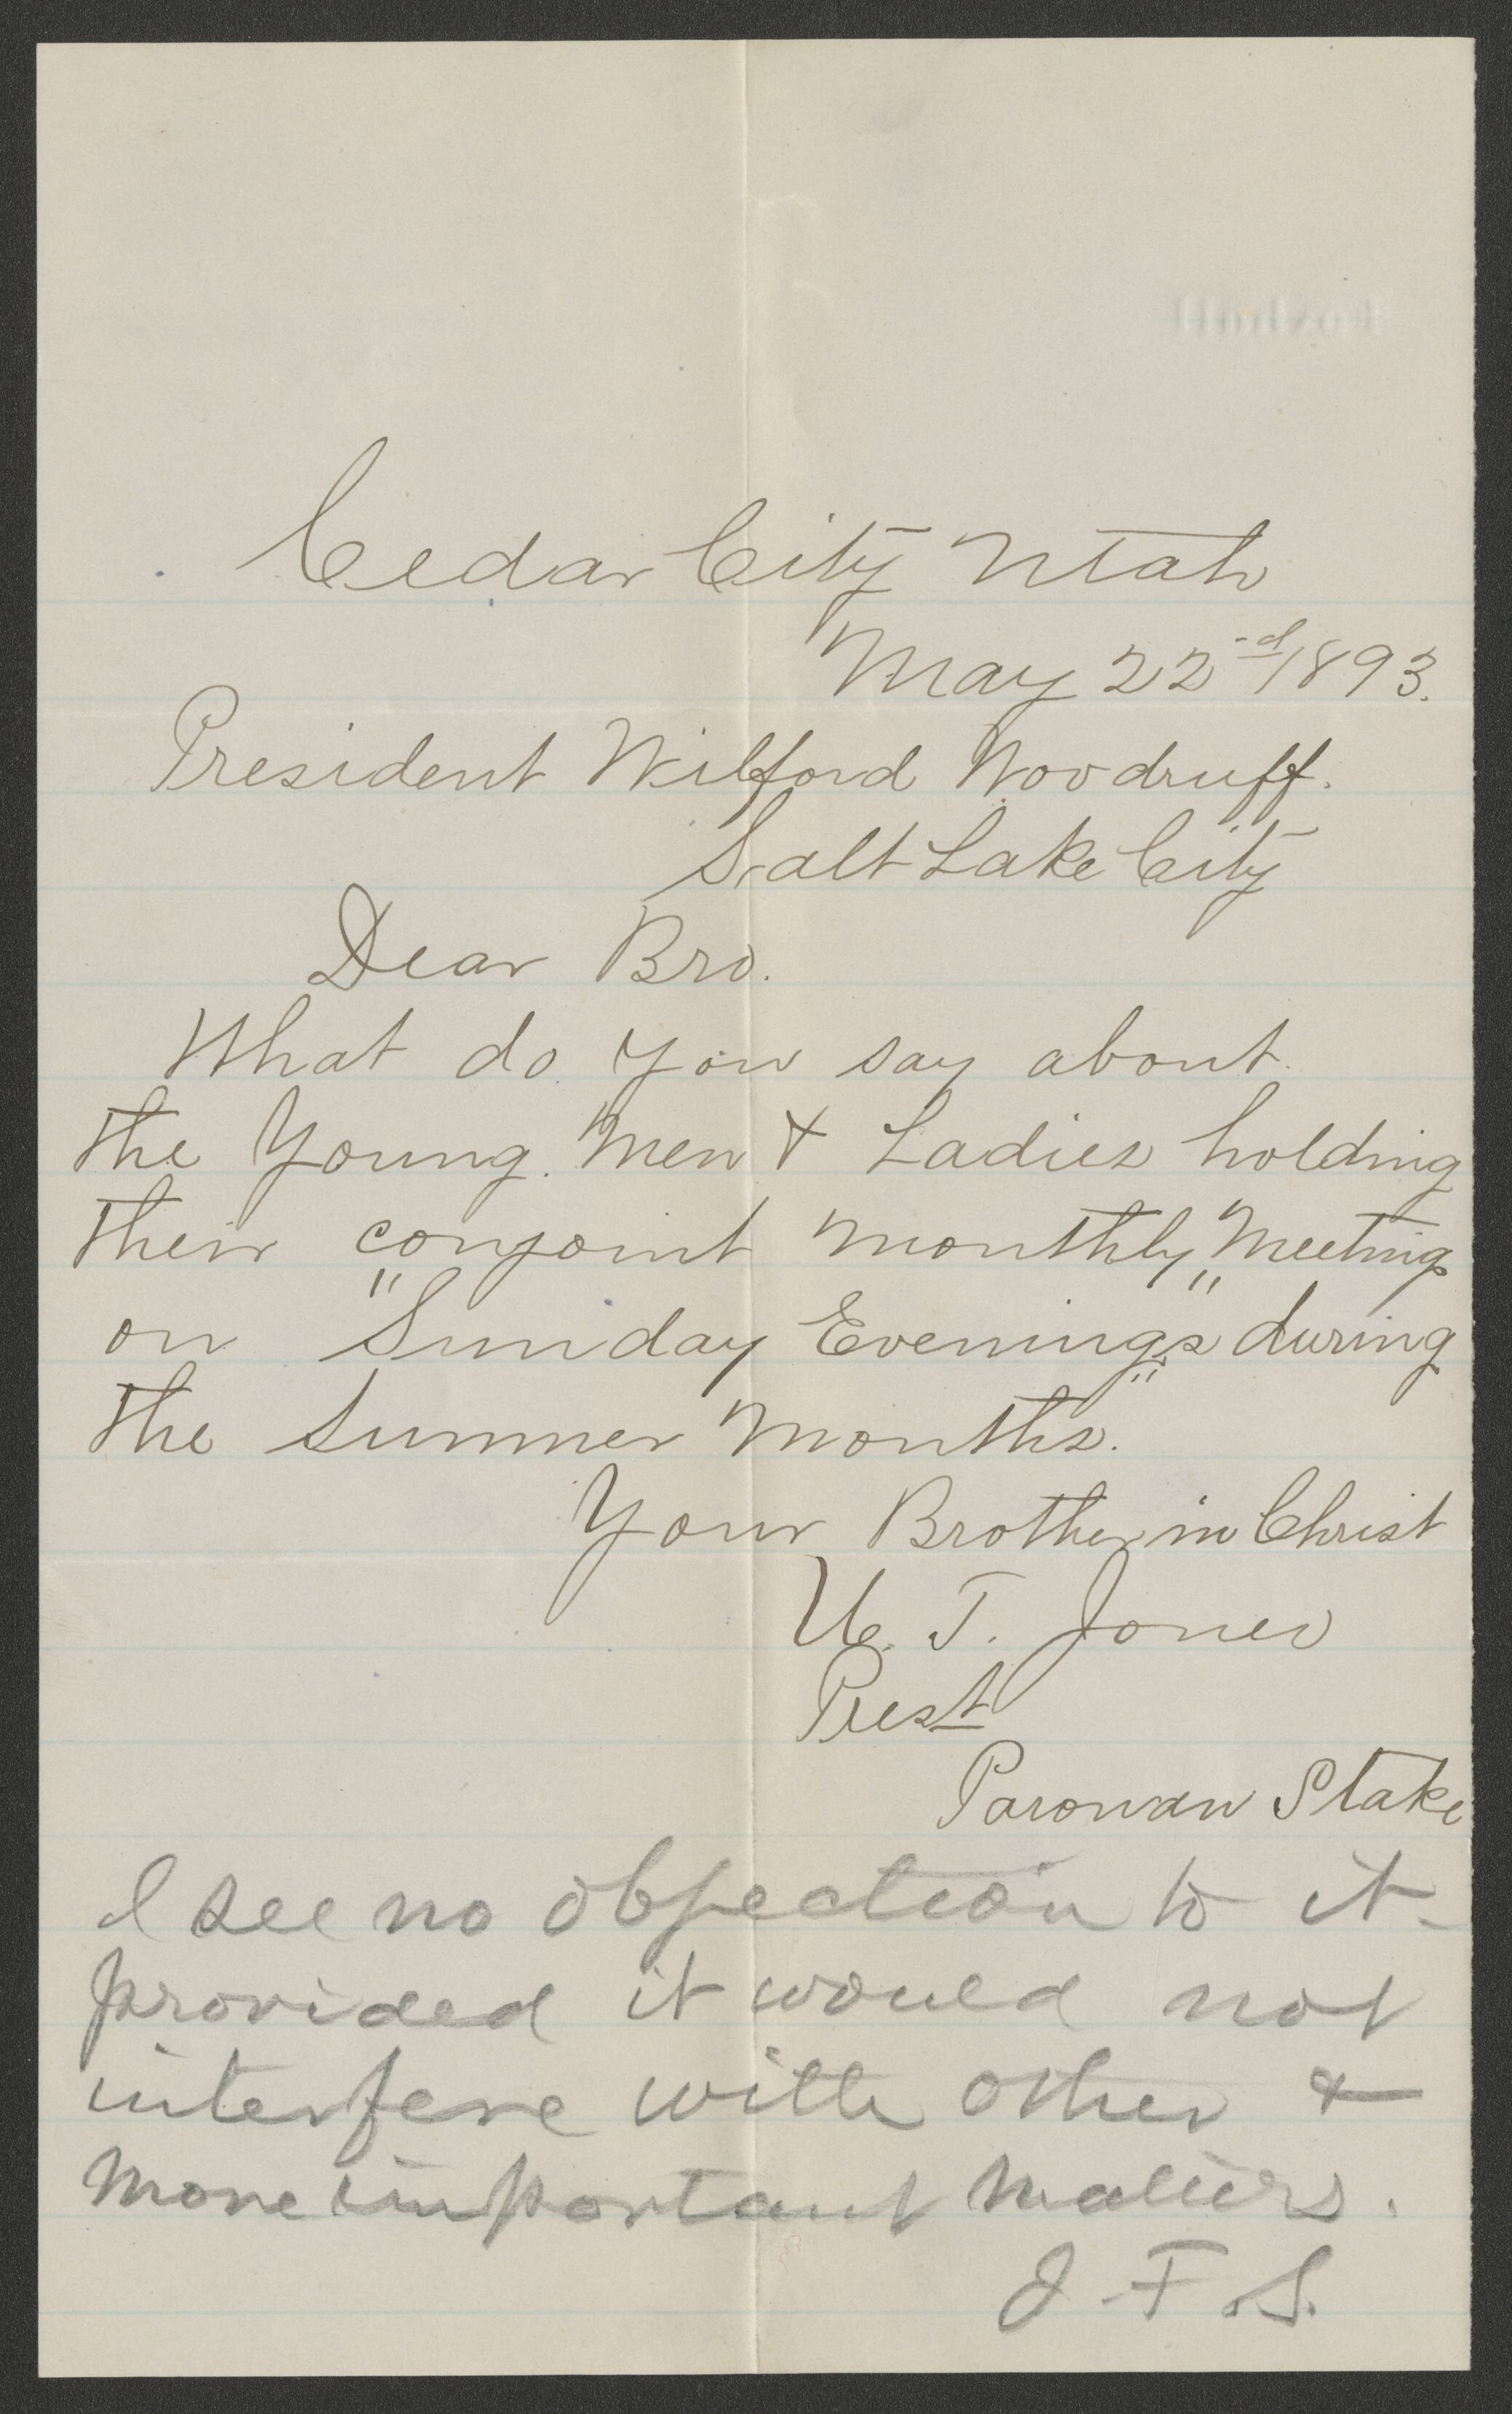 Cedar City Utah
May 22nd/1893.
President Wilford Woodruff.
Salt Lake City
Dear Bro.
What do you say about
the Young Men & Ladies holding
their "conjoint monthly" Meeting
on Sunday Evenings" during
the Summer Months.
Your Brother in Christ
U. T. Jones
Prest
Parowan Stake
I see no objection to it
provided it would not
interfere with other &
more important matters.
J. F. S.